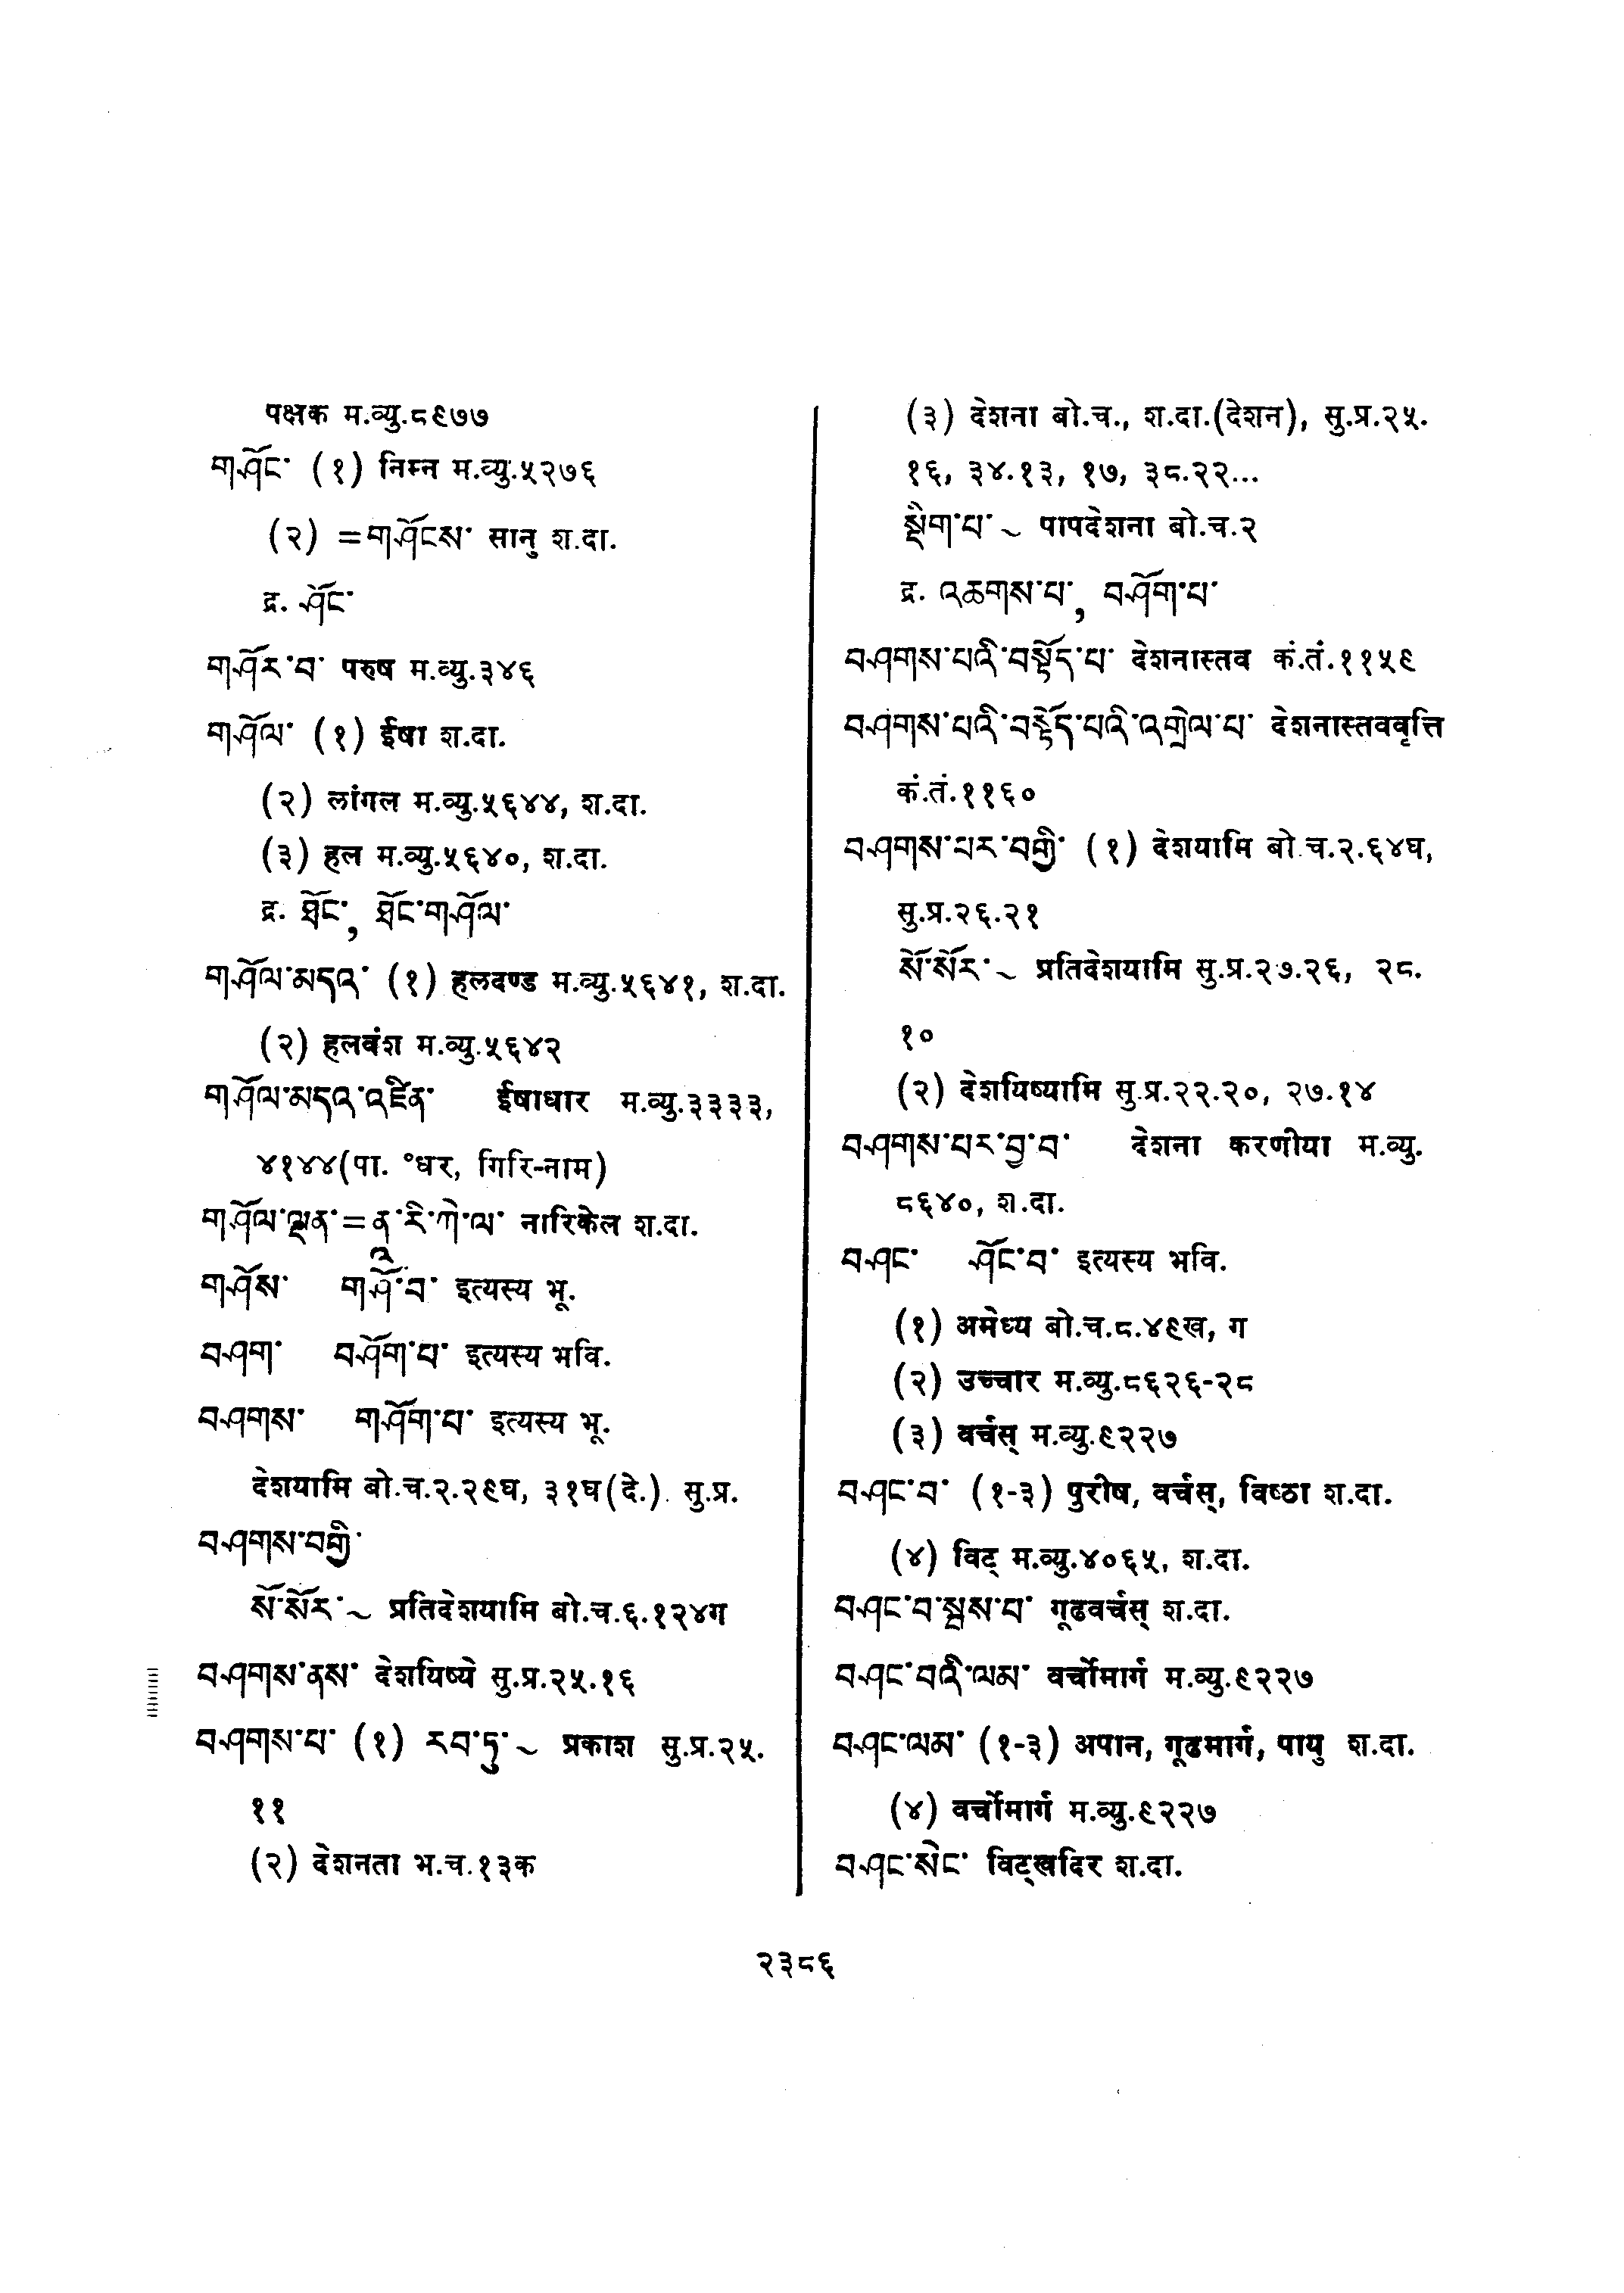 पक्षक म.व्यु.८९७७
གཤོང་ (१) निम्न म.व्यु.५२७६
(२) =གཤོངས་ सानु श.दा.
द्र. ཤོང་
གཤོར་བ་ परुष म.व्यु.३४६
གཤོལ་ (१) ईषा श.दा.
(२) लांगल म.व्यु.५६४४, श.दा.
(३) हल म.व्यु.५६४०, श.दा.
द्र. ཐོང་, ཐོང་གཤོལ་
གཤོལ་མདའ་ (१) हलदण्ड म.व्यु.५६४१, श.दा.
(२) हलवंश म.व्यु.५६४२
གཤོལ་མདའ་འཛིན་ ईषाधार म.व्यु.३३३३,
४१४४(पा. °धर, गिरि-नाम)
གཤོལ་ལྡན་=ནཱ་རི་ཀེ་ལ་ नारिकेल श.दा.
གཤོས་ གཤོ་བ་ इत्यस्य भू.
བཤག་ བཤོག་པ་ इत्यस्य भवि.
བཤགས་ གཤོག་པ་ इत्यस्य भू.
देशयामि बो.च.२.२९घ, ३१घ(दे.). सु.प्र.
བཤགས་བགྱི་
སོ་སོར་~ प्रतिदेशयामि बो.च.६.१२४ग
བཤགས་ནས་ देशयिष्ये सु.प्र.२५.१६
བཤགས་པ་ (१) རབ་ཏུ་~ प्रकाश सु.प्र.२५.
११
(२) देशनता भ.च.१३क
(३) देशना बो.च., श.दा.(देशन), सु.प्र.२५.
१६, ३४.१३, १७, ३८.२२...
སྡིག་པ་~ पापदेशना बो.च.२
द्र. འཆགས་པ་, བཤོག་པ་
བཤགས་པའི་བསྟོད་པ་ देशनास्तव कं.तं.११५९
བཤགས་པའི་བསྟོད་པའི་འགྲེལ་པ་ देशनास्तववृत्ति
कं.तं.११६०
བཤགས་པར་བགྱི་ (१) देशयामि बो.च.२.६४घ,
सु.प्र.२६.२१
སོ་སོར་~ प्रतिदेशयामि सु.प्र.२७.२६, २८.
१०
(२) देशयिष्यामि सु.प्र.२२.२०, २७.१४
བཤགས་པར་བྱ་བ་ देशना करणीया म.व्यु.
८६४०, श.दा.
བཤང་ ཤོང་བ་ इत्यस्य भवि.
(१) अमेध्य बो.च.८.४९ख, ग
(२) उच्चार म.व्यु.८६२६-२८
(३) वर्चस् म.व्यु.९२२७
བཤང་བ་ (१-३) पुरीष, वर्चस्, विष्ठा श.दा.
(४) विट् म.व्यु.४०६५, श.दा.
བཤང་བ་སྦས་བ་ गूढवर्चस् श.दा.
བཤང་བའི་ལམ་ वर्चोमार्ग म.व्यु.९२२७
བཤང་ལམ་ (१-३) अपान, गूढमार्ग, पायु श.दा.
(४) वर्चोमार्ग म.व्यु.९२२७
བཤང་སེང་ विट्खदिर श.दा.
२३८६